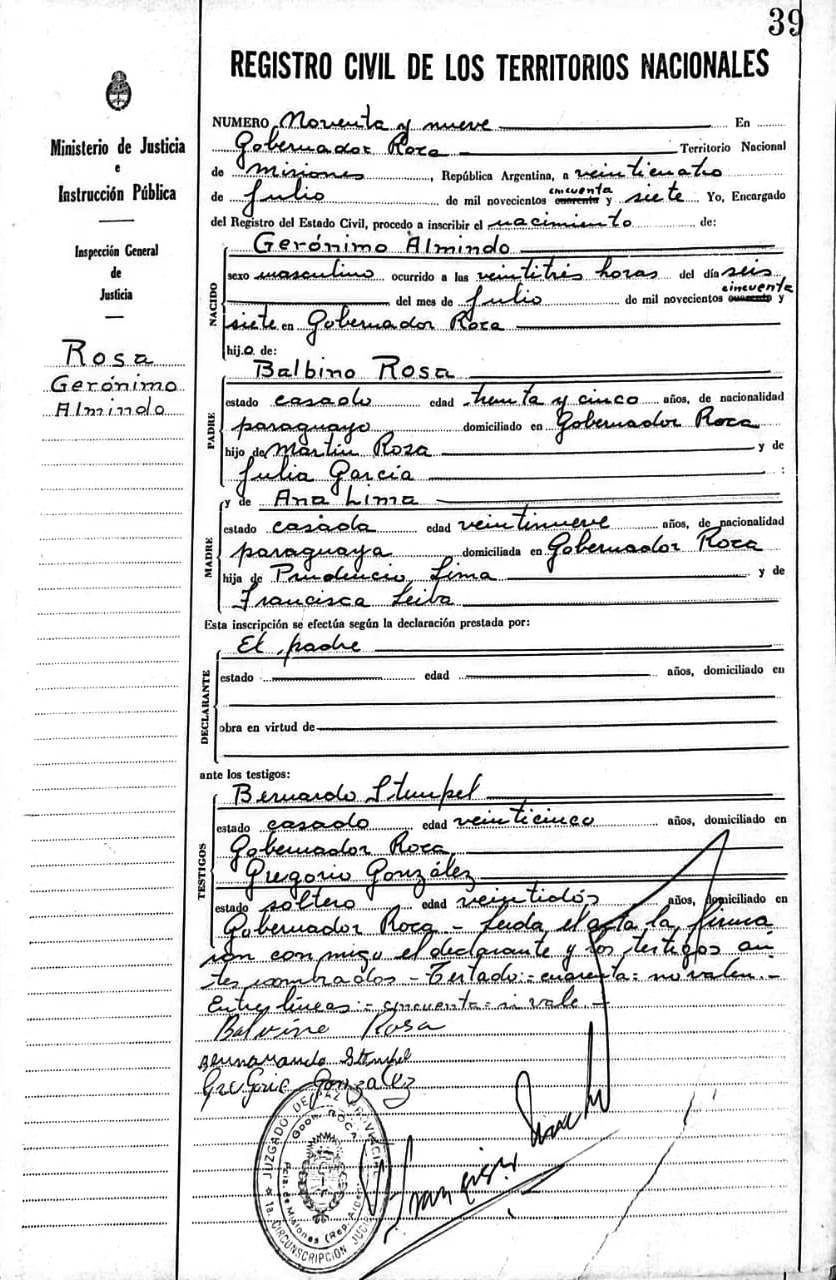 39
REGISTRO CIVIL DE LOS TERRITORIOS NACIONALES
Ministerio de Justicia
e
Instrucción Pública
Inspección General
de
Justicia
Rosa
Gerónimo
Almindo
NUMERO Noventa y nueve En
Gobernador Roca Territorio Nacional
de Misiones, República Argentina, a veinticuatro
cincuenta
de Julio de mil novecientos cuarenta y siete Yo, Encargado
del Registro del Estado Civil, procedo a inscribir el nacimiento de:
NACIDO
Gerónimo Almindo
sexo masculino ocurrido a las veintitrés horas del día seis
cincuenta
del mes de Julio de mil novecientos cuarenta y
siete en Gobernador Roca
hijo de:
PADRE
Balbino Rosa
estado casado edad treinta y cinco años, de nacionalidad
paraguayo domiciliado en Gobernador Roca
hijo de Martin Rosa y de
Julia Garcia :
MADRE
y de Ana Lima
estado casada edad veintinueve años, de nacionalidad
paraguaya domiciliada en Gobernador Roca
hija de Prudencio Lima y de
Francisca Leiva
Esta inscripción se efectúa según la declaración prestada por:
DECLARANTE
El padre
estado edad años, domiciliado en
obra en virtud de
ante los testigos:
TESTIGOS
Bernardo Stempel
estado casado edad veinticinco años, domiciliado en
Gobernador Roca
Gregorio González
estado soltero edad veintidós años, domiciliado en
Gobernador Roca - Leida el acta la firma
ron conmigo el declarante y los testigos an
tes nombrados - Testado: cuarenta: no valen. -
Entre lineas: cincuenta: si vale -
Balvino Rosa
Stempel
Gregorio Gonzalez
JUZGADO DE PAZ PROVINCIAL
GDOR. ROCA
Pcia. de Misiones (Rep. Arg.)
1a. CIRCUNSCRIPCIÓN
Francisco